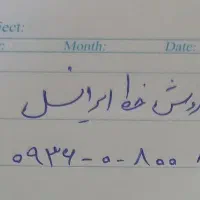 ject:
Month: Date:
روش خط ایرانسل
۰۹۳۶-۰-۸۰۰